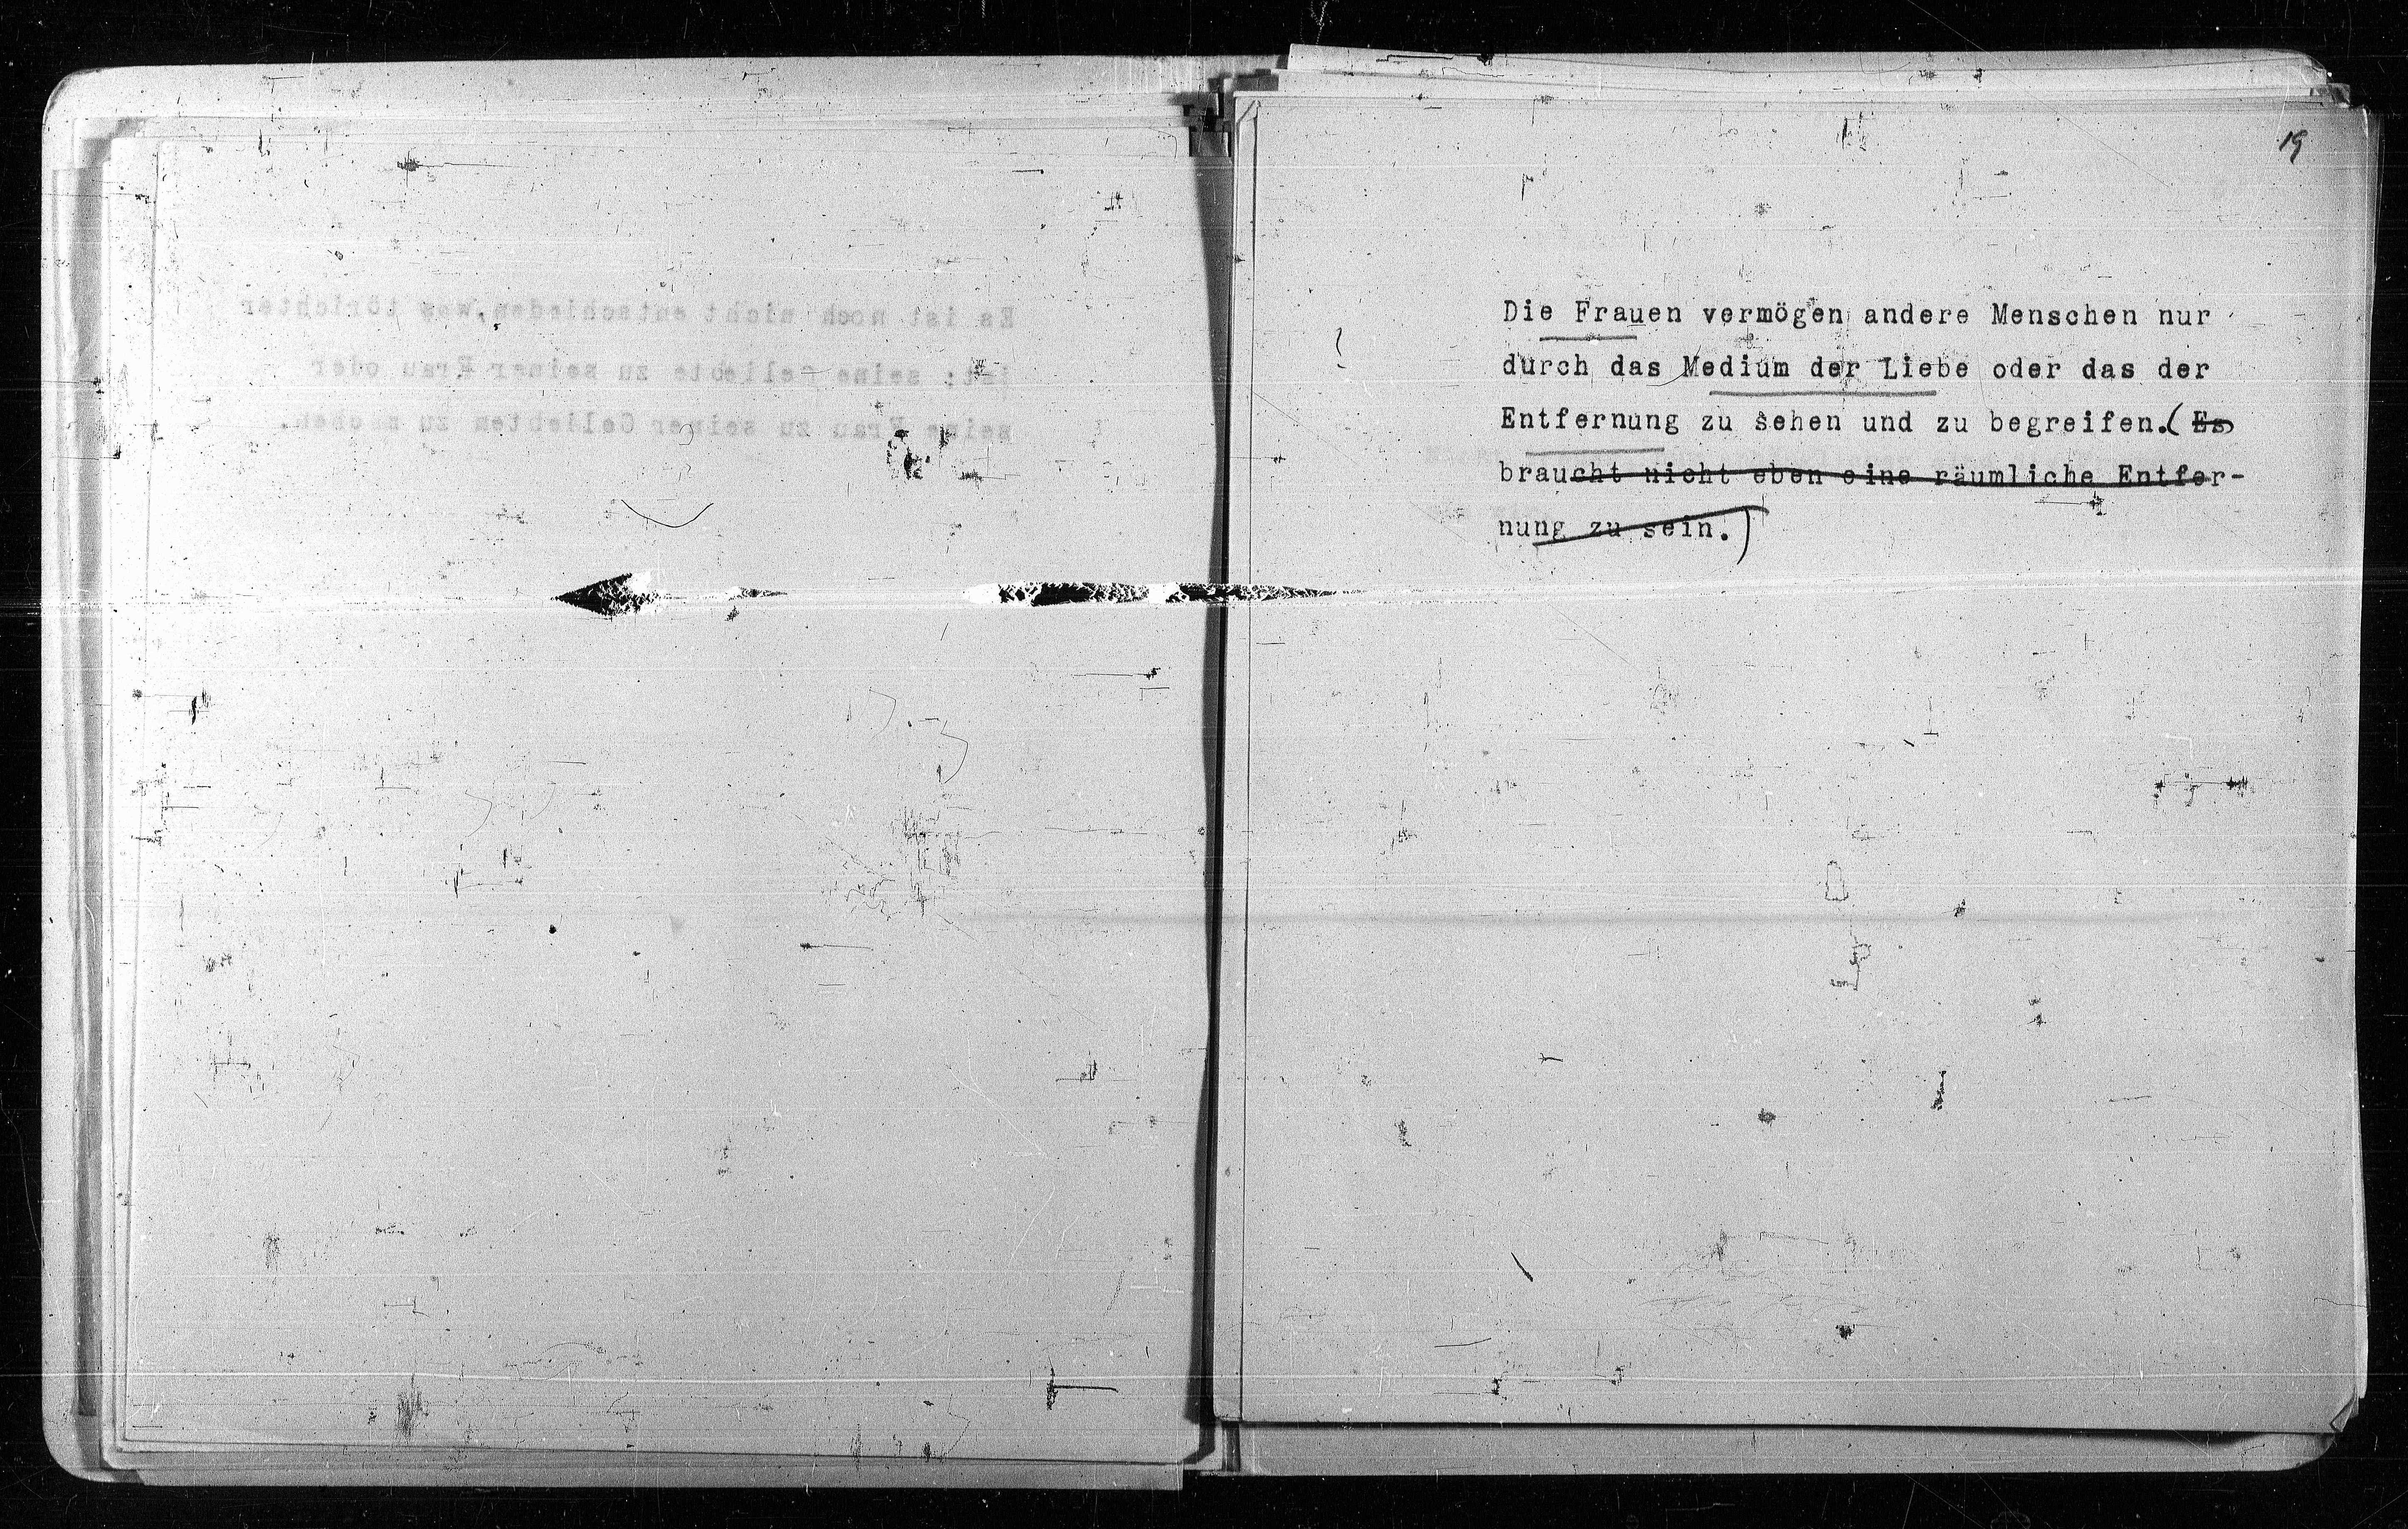 Es ist noch nicht entschieden, was törichter
ist: seine Geliebte zu seiner Frau oder
seine Frau zu seiner Geliebten zu machen.
19
Die Frauen vermögen andere Menschen nur
durch das Medium der Liebe oder das der
Entfernung zu sehen und zu begreifen.(Es
braucht nicht eben eine räumliche Entfer-
nung zu sein.)